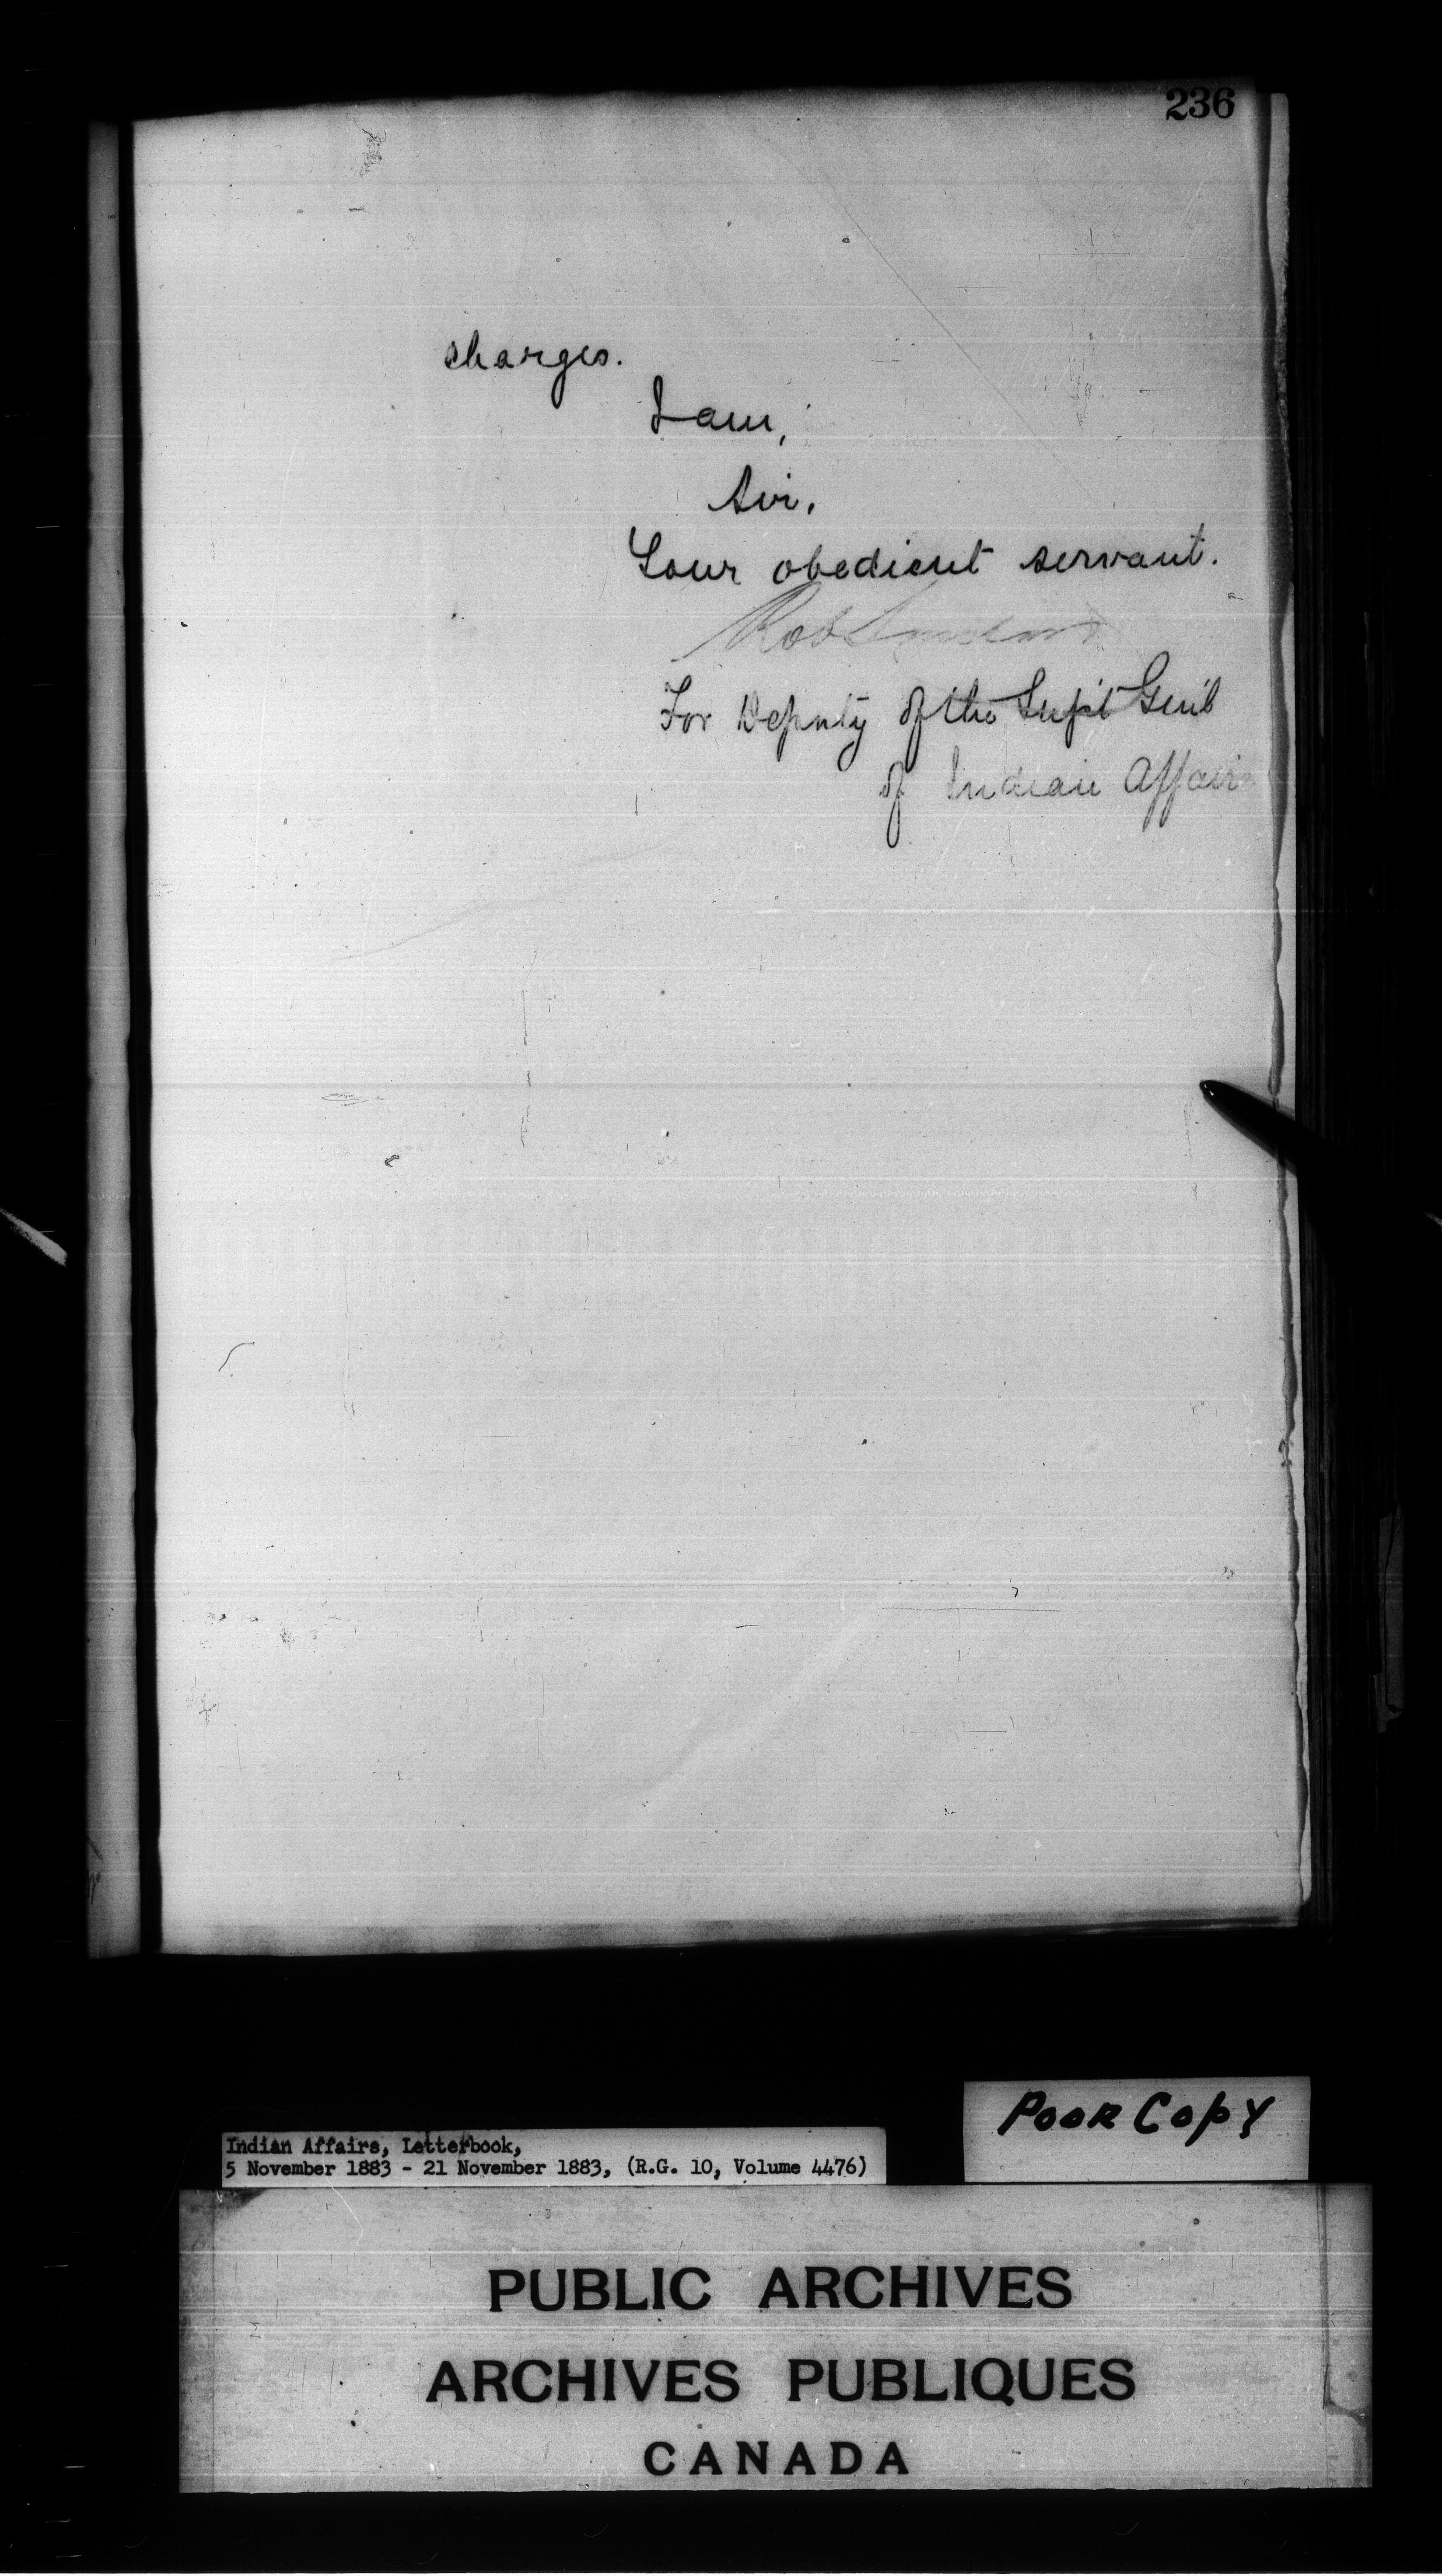 236
charges.
I am,
Sir,
Your obedient servant.
Rob
For Deputy of the Supt Genl
of Indian Affairs
Poor Copy
Indian Affairs, Letterbook,
5 November 1883 - 21 November 1883, (R.G. 10, Volume 4476)
PUBLIC ARCHIVES
ARCHIVES PUBLIQUES
CANADA